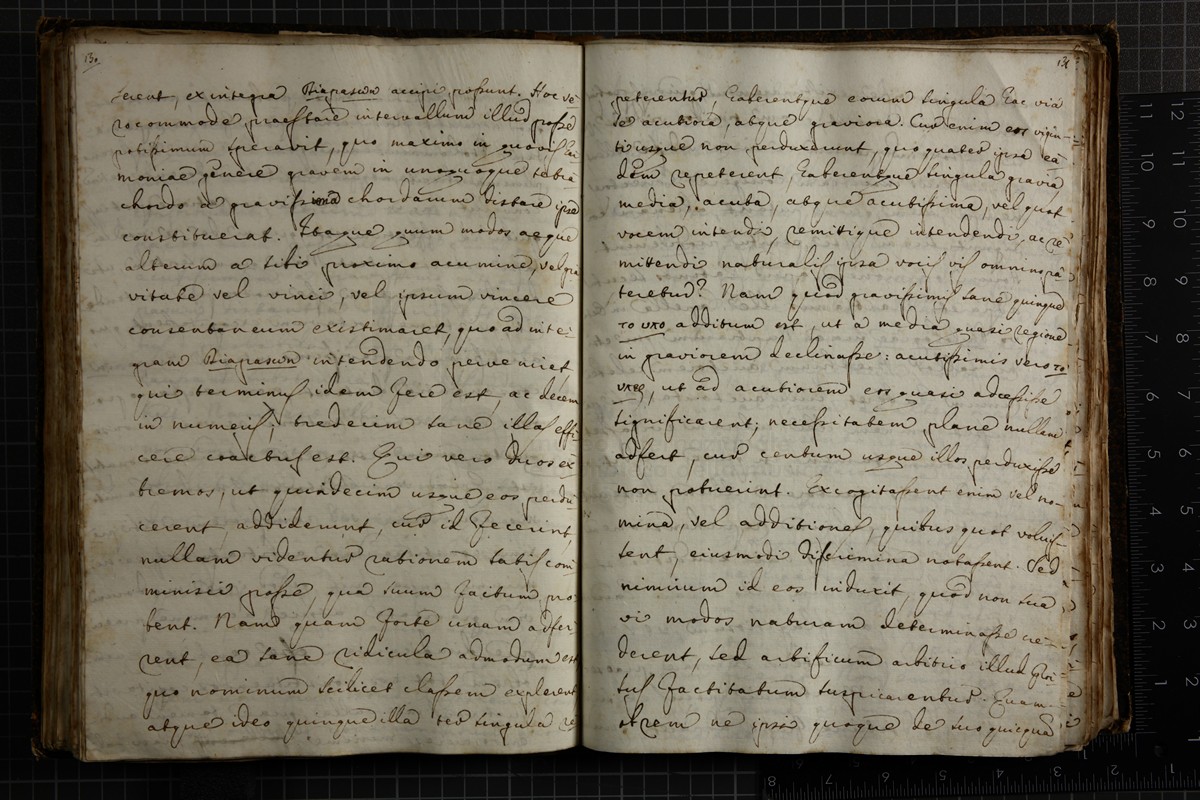 130
ferent, ex integra Diapason accipi possunt. Hoc ve-
ro commode praestare intervallum illud posse
potissimum speravit, quo maximo in quovis har
moniae genere gravem in unoquoque tetra
chordo a gravissima chordarum distare ipse
constituerat. Itaque quum modos aeque
alterum a sibi proximo acumine, vel gra
vitate vel vinci, vel ipsum vincere
consentaneum existimaret, quo ad inte-
gram Diapason intendendo perveniret
qui terminus idem fere est, ac decem
in numeris; tredecim sane illas effi
cere coactus est. Qui vero duos ex
tremos, ut quindecim usque eos perdu
cerent addiderunt, cur id fecerint,
nullam videntur rationem satis com
minisci posse, qua suum factum pro
bent. Nam quam forte unam adfer
rent, ea sane ridicula admodum est
quo nominum scilicet classem explerent
atque ideo quinque illa ter singula re
131
peterentur, haberentque eorum singula hac via
se acutiora, atque graviora. Cur enim eos vigin-
ti usque non perduxerunt, quo quater ipsa ea
dem repeterent, haberentque singula gravia
media, acuta, atque acutissima, vel quot
vocem intendi, remitique intendendi, ac re
mitendi naturalis ipsa vocis vis omnino pa
teretur? Nam quod gravissimis sane quinque
το υπο additum est, ut a media quasi regione
in graviorem declinasse: acutissimis vero το
υπερ, ut ad acutiorem eos quasi adcessisse
significarent; necessitatem plane nullam
adfert, cur centum usque illos perduxisse
non potuerint. Excogitassent enim vel no-
mina, vel additiones, quibus quot voluis
sent, eiusmodi discrimina notassent. Sed
nimirum id eos induxit, quod non sua
vi modos naturam determinasse cre-
derent, sed artificum arbitrio illud
tus factitatum suspicarentur. Quam-
obrem ne ipsi quoque de suo quicquam